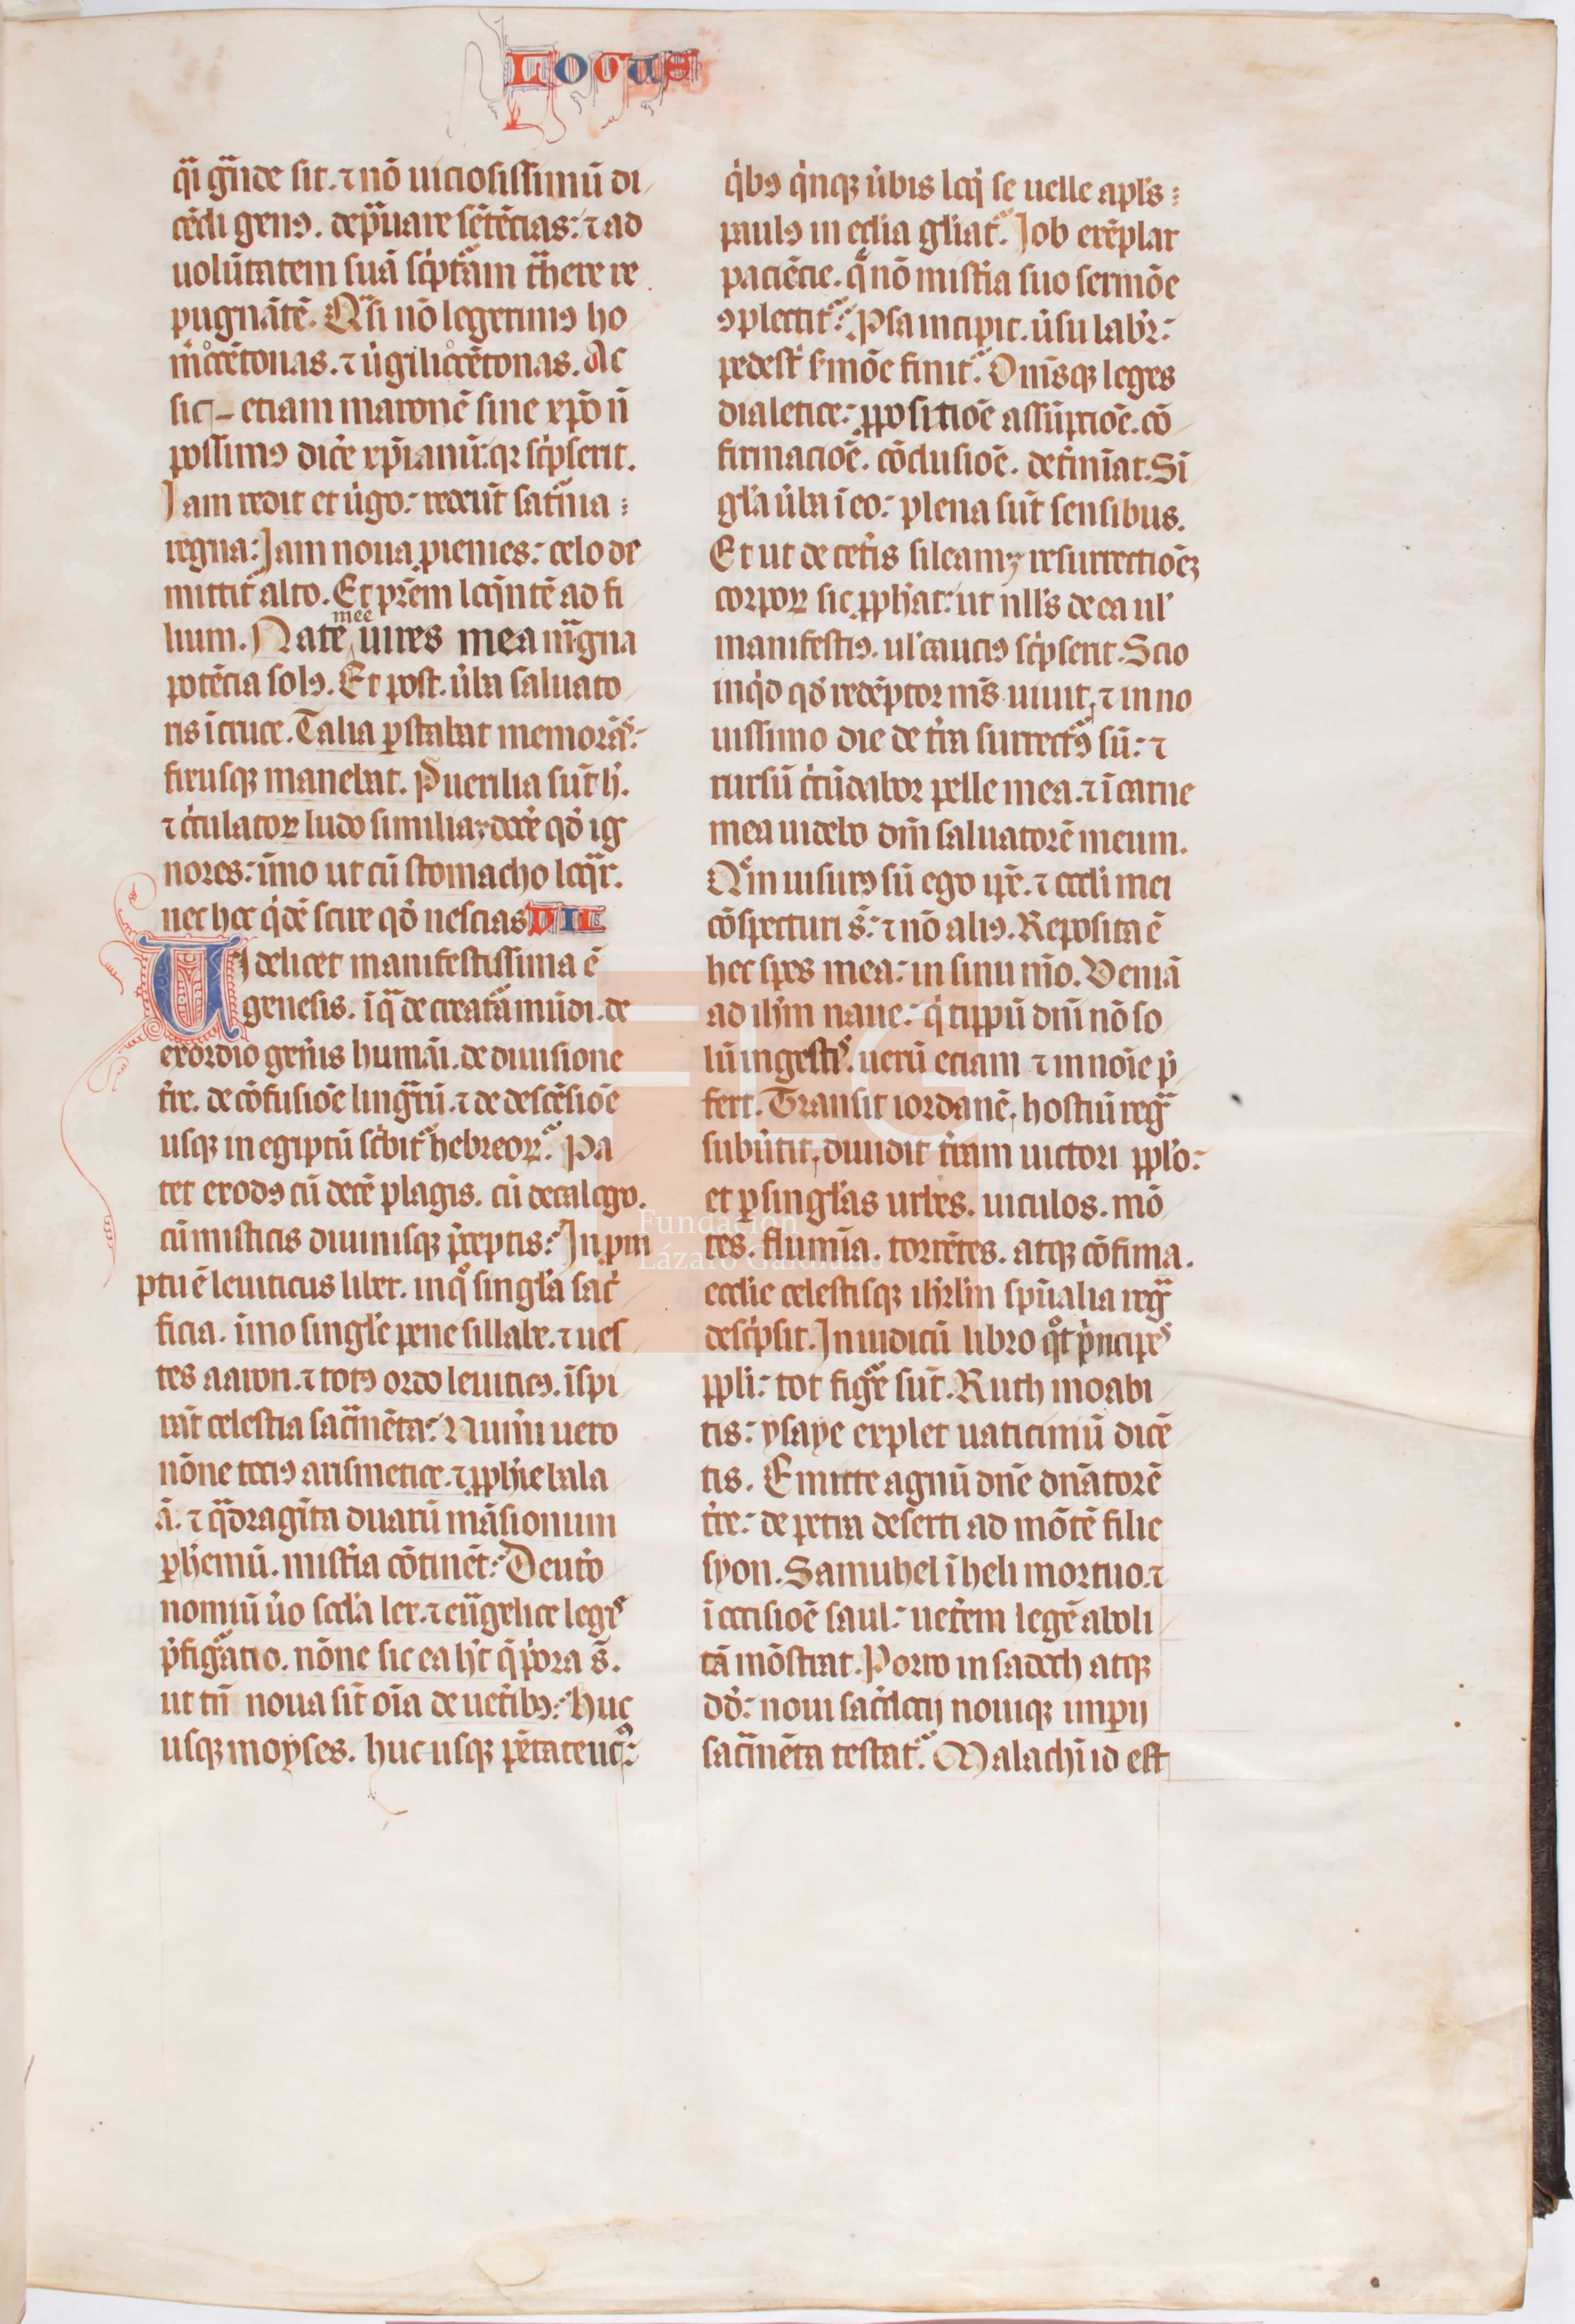 LOGUS
q̄i g̃nde sit. ⁊ nō uiciosissimū di
cẽdi genꝰ. dep̃uare sẽtẽcias: ⁊ ad
uolūtatem suā sc̓iptãm tͣhere re
pugnātē. Q̃si nō legerimꝰ ho
m̓ocẽtonas. ⁊ ūgiliocẽtonas. Ac
sic etiam maronē sine xp̄o ñ
possimꝰ dic̓e xp̄ianū: qꝛ sc̓ipserit.
Jam redit et ūgo: redeūt sat̓nia
regna: Jam noua p̱ienies: celo de
mittit̃ alto. Et pr̄em loq̄ntē ad fi
lium. Nate mee uires mea mͣgna
potēcia solꝰ. Et post. ūba saluato
ris ī cruce. Talia ꝑstabat memorãs:
fixusqꝫ manebat. Puerilia sūt h̓.
⁊ c̓culatoꝝ ludo similia; docē qd̄ ig
nores: īmo ut cū stomacho loq̄r.
nec hoc q̓dē scire qd̄ nescias VII
Uidelicet manifestissima ē
genesis. ī q̄ de creat̃a mūdi. de
exordio gen̄is humāi. de diuisione
t̄re. de cōfusiōe lingͣrū. ⁊ de descēsiōe
usqꝫ in egiptū sc̓bit̃ hebreoꝝ. Pa
tet exodꝰ cū decē plagis. cū decalogo.
cū misticis diuinisqꝫ p̄ceptis: In ꝓm
ptu ē leuiticus liber. in qͦ singl̓a sac̓
ficia. īmo singl̓e pene sillabe. ⁊ ues
tes aaron. ⁊ totꝰ ordo leuiticꝰ. īspi
rāt celestia sac̃mēta: Nūīu uero
nōne tociꝰ arismetice. ⁊ ꝓph̓ie bala
ā. ⁊ qͣdragīta duarū māsionum
ꝑ h̓emū. mist̓ia cōtinēt: Deut̓o
nomiū ūo sc̄da lex. ⁊ euͣgelice legis
p̄figͣatio. nōne sic ea h̄t q̄ p̓ora s̄.
ut tn̄ noua sīt oīa de uet̓ibꝰ: Huc
usqꝫ moyses. huc usqꝫ pētateucꝰ:
q̓bꝰ q̓nqꝫ ūbis loq̓ se uelle apl̓s
paulꝰ in ecc̄lia gl̓iat̃. Job exēplar
paciēcie. q̄ nō mist̓ia suo sermōe
ꝯplectit̃: Psa incipit. ūsu labit̃:
pedest̓ s̓mōe finit̃. Om̄isqꝫ leges
dialetice: ꝓpositiōe assūptiōe. cō
firmaciōe. cōclusiōe. det̓mīat. Si
gl̓a ūba ī eo: plena sūt sensibus.
Et ut de cet̓is sileam; resurrectiōeꝫ
corpoꝝ sic ꝓph̓at: ut nll̓s de ea ul̓
manifestiꝰ. ul̓ cauciꝰ sc̓ipserit. Scio
inq̓d qd̓ redēptor m̄s uiuit, ⁊ in no
uissimo die de t̓ra surrectꝰ sū: ⁊
rursū c̓cūdabor pelle mea. ⁊ ī carne
mea uidebo dm̄ saluatorē meum.
Qͣm uisurꝰ sū ego ip̄e. ⁊ oculi mei
cōspecturi s̄: ⁊ nō aliꝰ. Reposita ē
hec spes mea: in sinu m̄o. Veniā
ad ih̓m naue: q̓ tippū dn̄i nō so
lū in gestis. uerū eciam ⁊ in noīe p̓
fert. Transit iordanē, hostiū regͣ
subūtit, diuidit t̓ram uictori ppl̓o:
et ꝑ singl̓as urbes. uiculos. mō
tes. flumīa. torrētes. atqꝫ cōfinia.
eccl̓ie celestisqꝫ ih̓rl̓m sp̄ualia regͣ
desc̓ipsit. In iudicū libro qͦt p̓ncipes
ppl̓i: tot figͬe sūt. Ruth moabi
tis: ysaye explet uaticiniū dicē
tis. Emitte agnū dn̄e dn̄atorē
t̓re: de petra deserti ad mōtē filie
syon. Samuhel ī heli mortuo. ⁊
ī occisiōe saul: uet̓em legē aboli
tā mōstrat. Porro in sadoch atqꝫ
dd̓: noui sac̓docij nouiqꝫ imꝑij
sac̃mēta testat̃. Malachī id est